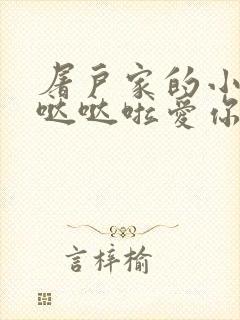 屠户家的小
哒哒啦爱你
言梓榆